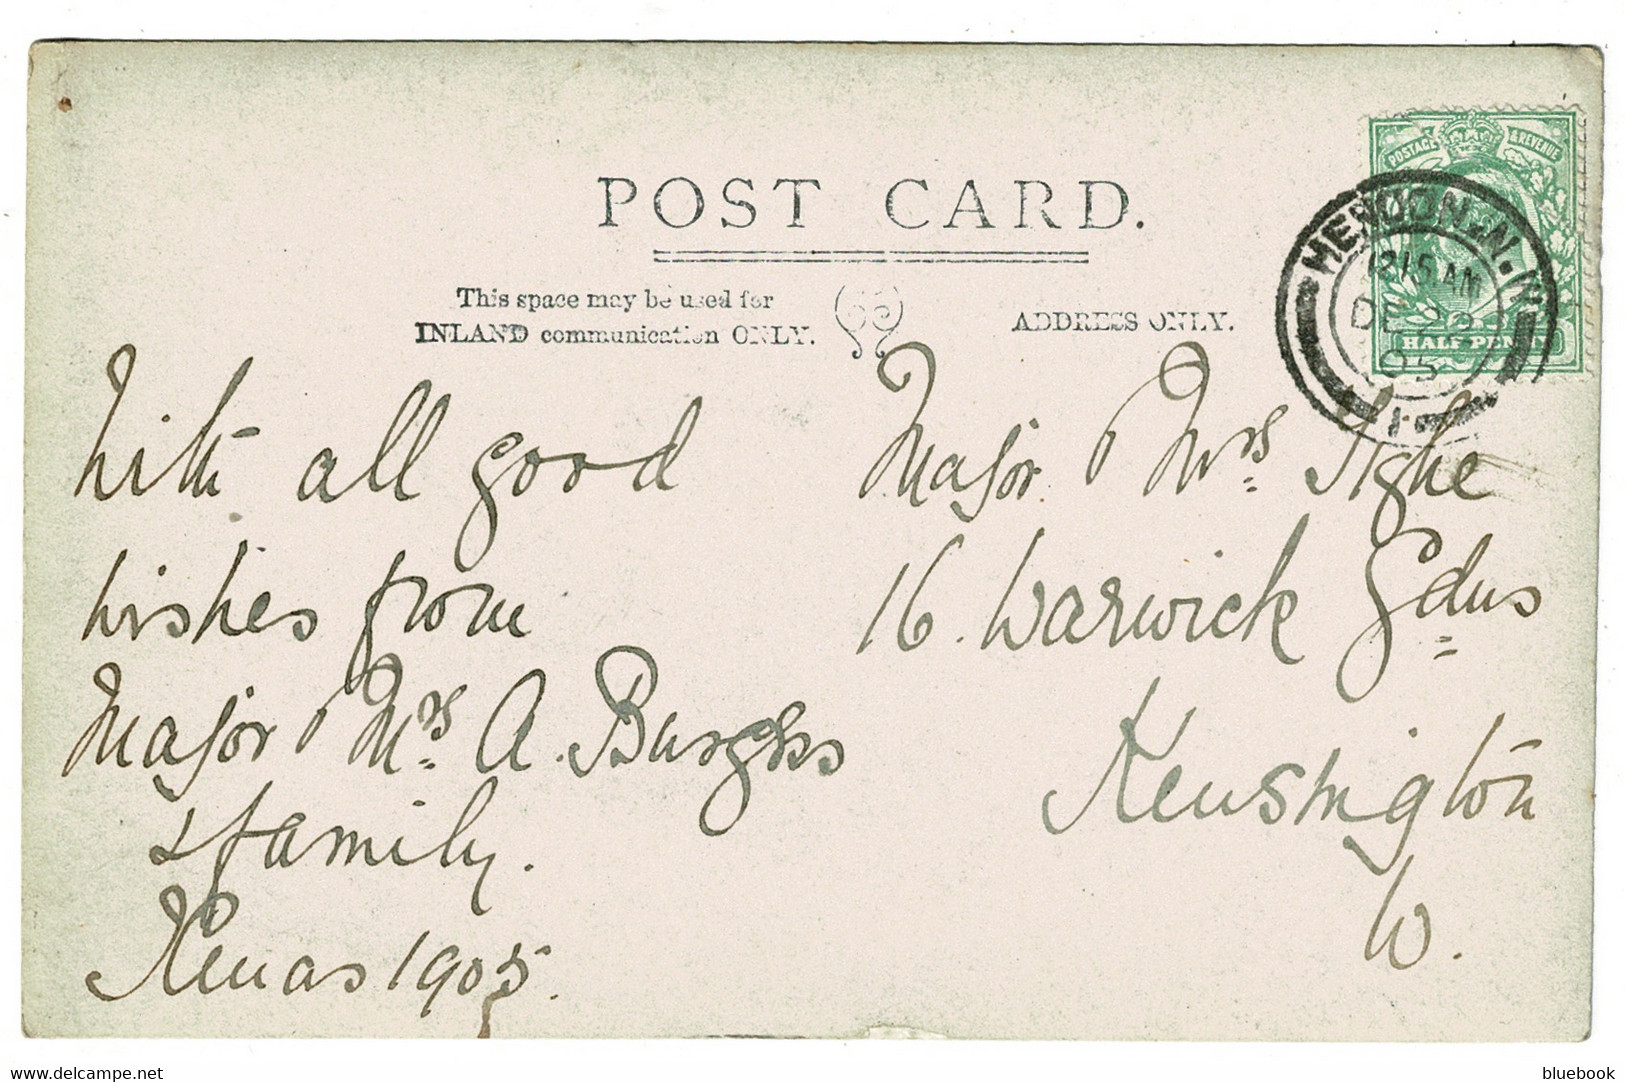 POST CARD.
This space may be used for
INLAND communication ONLY.
ADDRESS ONLY.
POSTAGE & REVENUE
HALF PENNY
HENDON. N.W
12 15 AM
DE 22
05
With all good
wishes from
Major & Mrs. A. Burgess
& family.
Xmas 1905.
Major & Mrs. Tighe
16. Warwick Gdns
Kensington
W.
delcampe.net
bluebook